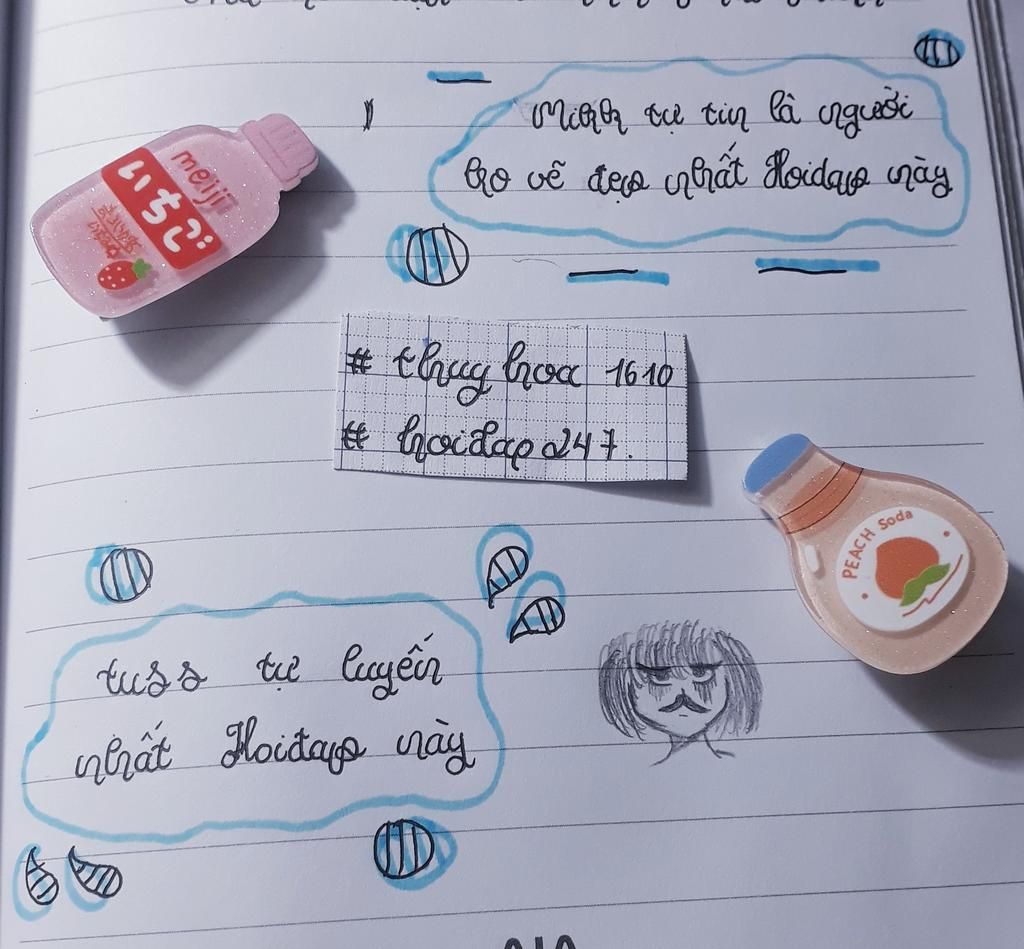 Mình tự tin là người
có vẻ đẹp nhất Hoidap này
meiji
いちご
# thuy hoa 1610
# hoidap247.
PEACH Soda
tuss tự luyến
nhất Hoiđap này